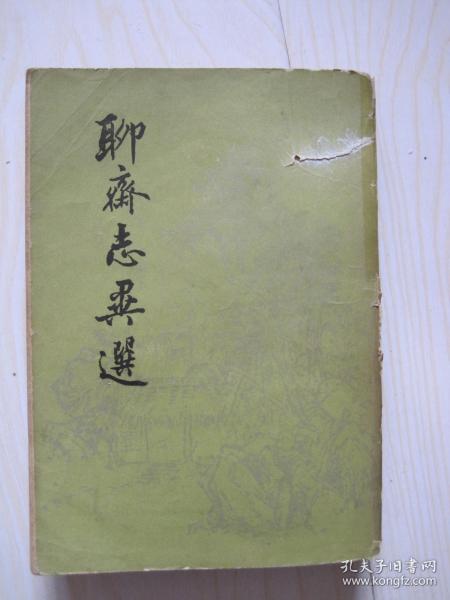 聊齋志異選
孔夫子旧书网
www.kongfz.com